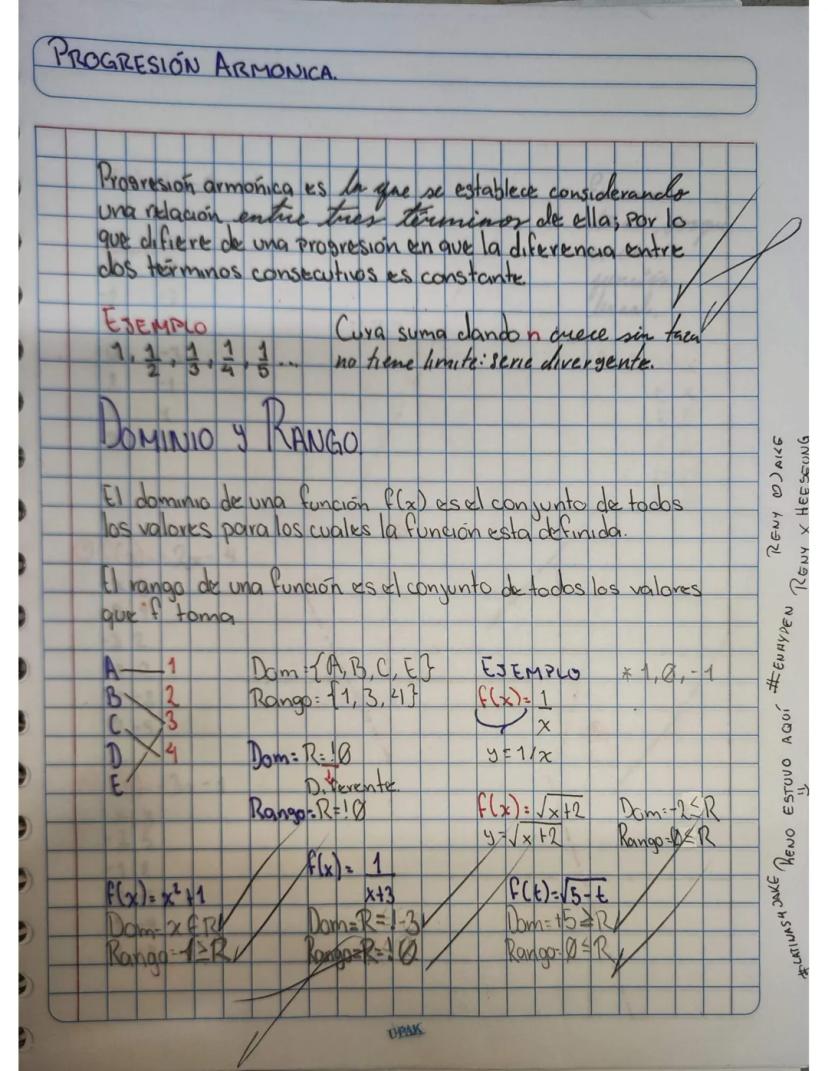 PROGRESIÓN ARMONICA.
Progresión armónica es la que se establece considerando
una relación entre tres términos de ella; por lo
que difiere de una progresión en que la diferencia entre
dos términos consecutivos es constante
EJEMPLO
1, 1/2, 1/3, 1/4, 1/5 ...
Cuya suma dando n crece sin
no tiene limite: serie divergente.
DOMINIO y RANGO
El dominio de una función f(x) es el conjunto de todos
los valores para los cuales la función esta definida.
El rango de una función es el conjunto de todos los valores
que f toma
A 1
B 2
C 3
D 4
E
Dom = {A, B, C, E}
Rango = {1, 3, 4}
Dom = R = !0
Diferente.
Rango = R = !0
EJEMPLO * 1, 0, -1
f(x) = 1/x
y = 1/x
f(x) = √x+2
y = √x+2
Dom = -2 ≤ R
Rango = 0 ≤ R
f(x) = x² + 1
Dom = x ∈ R
Rango = 1 ≥ R
f(x) = 1/x+3
Dom = R = !-3
Rango = R = !0
f(t) = √5-t
Dom = +5 ≥ R
Rango = 0 ≤ R
UPAK
#LATINASHJAKE RENO ESTUVO AQUÍ #ENHYPEN RENY X HEESEUNG
RENY JAKE